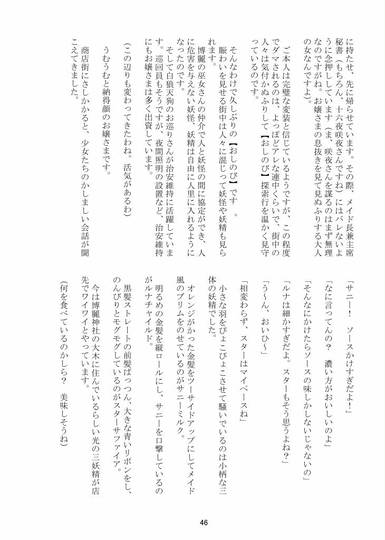 に持たせ、先に帰らせています。その際、メイド長兼主席
秘書（もちろん、十六夜咲夜さんですね）にはバレないよ
うに念押ししています（ま、咲夜さんを謀るのはまず無理
なのですがね。お嬢さまの息抜きを見て見ぬふりする大人
の女なんです）。
ご本人は完璧な変装と信じているようですが、この程度
でダマされるのは、よっぽどアレな連中くらいで、街中の
人々は気付かぬふりして【おしのび】探索行を温かく見守
っているのです。
そんなわけで久しぶりの【おしのび】です。
賑わいを見せる街中は人々に混じって妖怪や妖精も見ら
れます。
博麗の巫女さんの仲介で人と妖怪の間に協定ができ、人
に危害を与えない妖怪、妖精は自由に人里に入れるように
なったのです。
そして白狼天狗のお巡りさんが治安維持に活躍していま
す。巡回員もそうですが、夜間照明の設置など、治安維持
にもお嬢さまは多く出資しています。
（この辺りも変わってきたわね、活気があるわ）
うむうむと納得顔のお嬢さまです。
商店街にさしかかると、少女たちのかしましい会話が聞
こえてきました。
「サニー！　ソースかけすぎだよ！」
「なに言ってんの？　濃い方がおいしいのよ」
「そんなにかけたらソースの味しかしないじゃないの」
「ルナは細かすぎだよ。スターもそう思うよね？」
「う〜ん、おいひ〜」
「相変わらず、スターはマイペースね」
小さな羽をぴょこぴょこさせて騒いでいるのは小柄な三
体の妖精でした。
オレンジがかった金髪をツーサイドアップにしてメイド
風のブリムをのせているのがサニーミルク。
明るめの金髪を縦ロールにし、サニーを口撃しているの
がルナチャイルド。
黒髪ストレートの前髪ぱっつん、大きな青いリボンをし、
のんびりとモグモグしているのがスターサファイア。
今は博麗神社の大木に住んでいるらしい光の三妖精が店
先でワイワイとやっています。
（何を食べているのかしら？　美味しそうね）
46